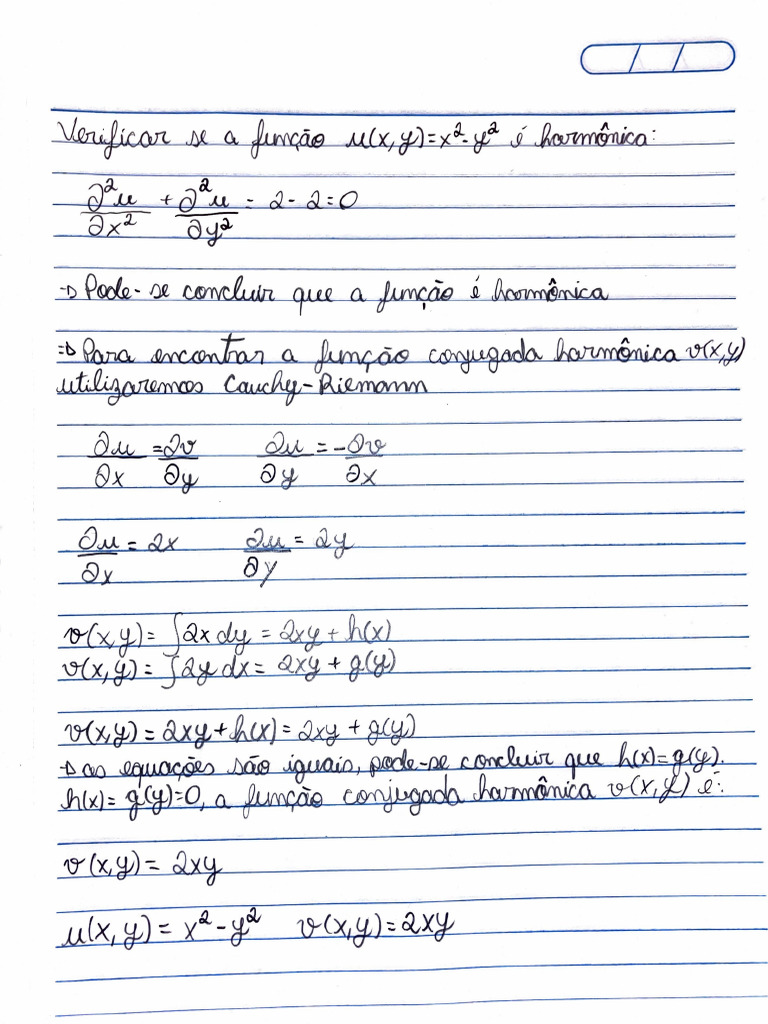 Verificar se a função u(x,y)=x²-y² é harmônica:
∂²u/∂x² + ∂²u/∂y² = 2-2=0
→ Pode-se concluir que a função é harmônica
⇒ Para encontrar a função conjugada harmônica v(x,y)
utilizaremos Cauchy-Riemann
∂u/∂x = ∂v/∂y ∂u/∂y = -∂v/∂x
∂u/∂x = 2x ∂u/∂y = 2y
v(x,y)= ∫2x dy = 2xy + h(x)
v(x,y)= ∫2y dx = 2xy + g(y)
v(x,y) = 2xy + h(x) = 2xy + g(y)
→ as equações são iguais, pode-se concluir que h(x)=g(y).
h(x) = g(y)=0, a função conjugada harmônica v(x,y) é:
v(x,y) = 2xy
u(x,y) = x²-y² v(x,y)=2xy